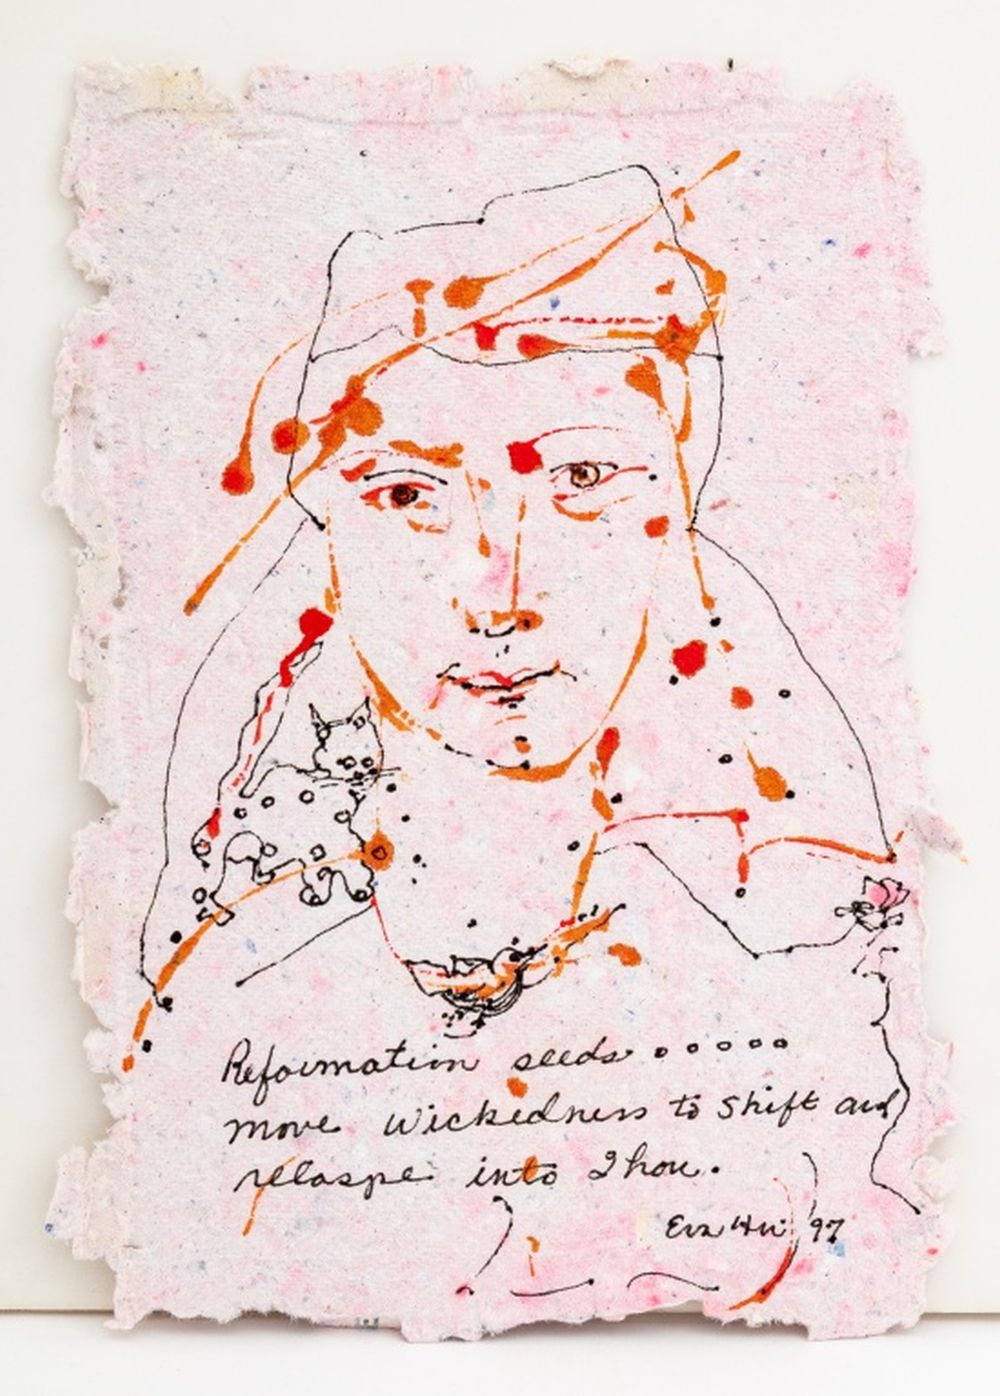 Reformation seeds . . . . .
move wickedness to shift and
relaspe into Thou.
Eva 97